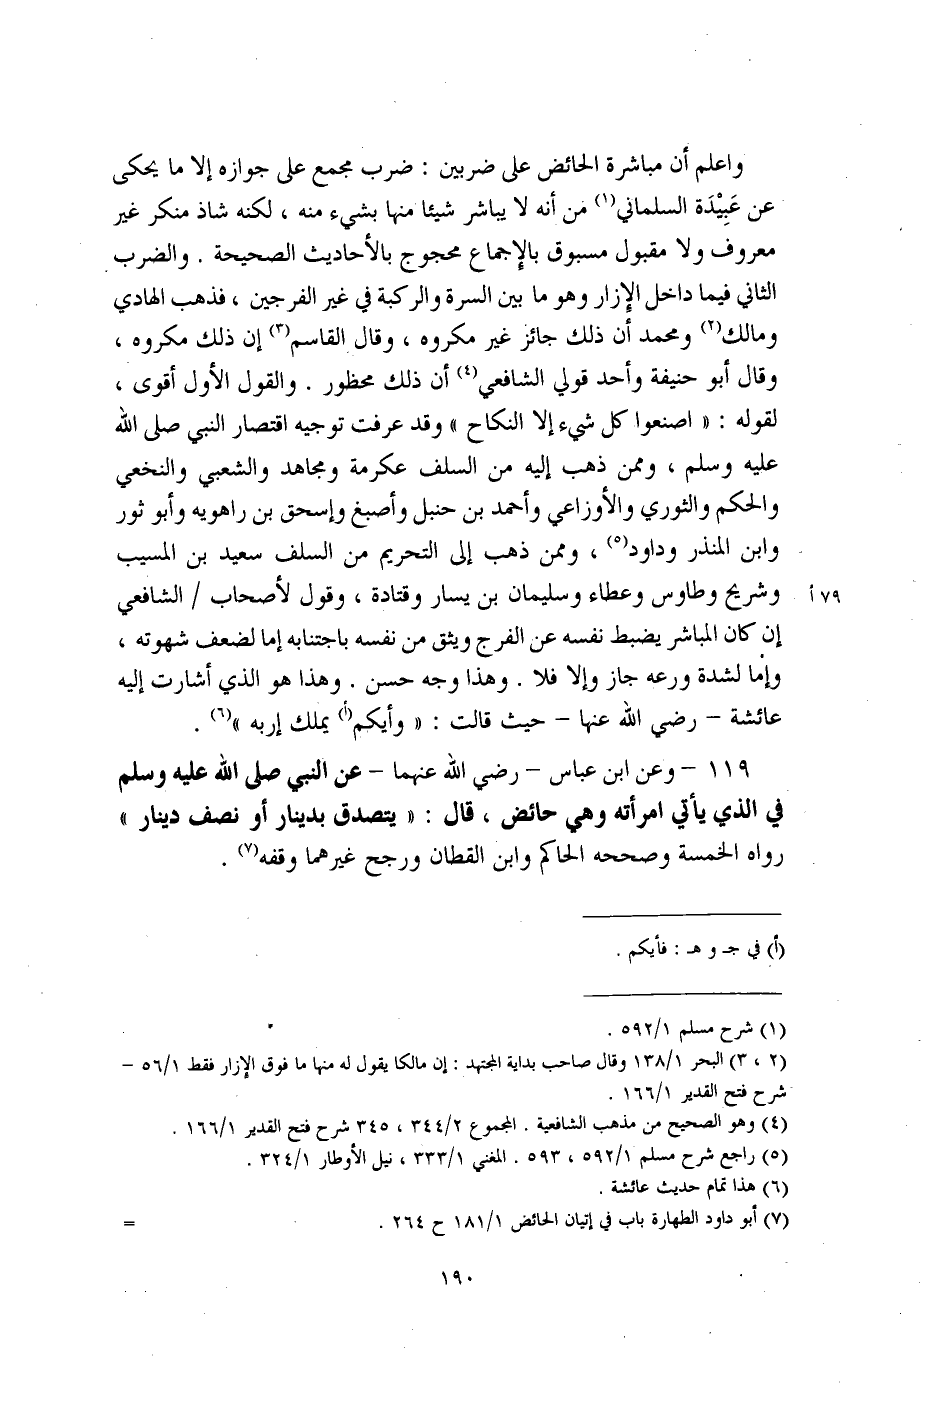 واعلم أن مباشرة الحائض على ضربين : ضرب مجمع على جوازه إلا ما يحكى
عن عَبِيْدَة السلماني(١) من أنه لا يباشر شيئا منها بشيء منه ، لكنه شاذ منكر غير
معروف ولا مقبول مسبوق بالإجماع محجوج بالأحاديث الصحيحة . والضرب
الثاني فيما داخل الإزار وهو ما بين السرة والركبة في غير الفرجين ، فذهب الهادي
ومالك(٢) ومحمد أن ذلك جائز غير مكروه ، وقال القاسم(٣) إن ذلك مكروه ،
وقال أبو حنيفة وأحد قولي الشافعي(٤) أن ذلك محظور . والقول الأول أقوى ،
لقوله : « اصنعوا كل شيء إلا النكاح » وقد عرفت توجيه اقتصار النبي صلى الله
عليه وسلم ، وممن ذهب إليه من السلف عكرمة ومجاهد والشعبي والنخعي
والحكم والثوري والأوزاعي وأحمد بن حنبل وأصبغ وإسحق بن راهويه وأبو ثور
وابن المنذر وداود(٥) ، وممن ذهب إلى التحريم من السلف سعيد بن المسيب
وشريح وطاوس وعطاء وسليمان بن يسار وقتادة ، وقول لأصحاب / الشافعي ٧٩ أ
إن كان المباشر يضبط نفسه عن الفرج ويثق من نفسه باجتنابه إما لضعف شهوته ،
وإما لشدة ورعه جاز وإلا فلا . وهذا وجه حسن . وهذا هو الذي أشارت إليه
عائشة – رضي الله عنها – حيث قالت : « وأيكم(أ) يملك إربه »(٦) .
١١٩ – وعن ابن عباس – رضي الله عنهما – عن النبي صلى الله عليه وسلم
في الذي يأتي امرأته وهي حائض ، قال : « يتصدق بدينار أو نصف دينار »
رواه الخمسة وصححه الحاكم وابن القطان ورجح غيرهما وقفه(٧) .
(أ) في جـ و هـ : فأيكم .
(١) شرح مسلم ٥٩٢/١ .
(٢ ، ٣) البحر ١٣٨/١ وقال صاحب بداية المجتهد : إن مالكا يقول له منها ما فوق الإزار فقط ٥٦/١ –
شرح فتح القدير ١٦٦/١ .
(٤) وهو الصحيح من مذهب الشافعية . المجموع ٣٤٤/٢ ، ٣٤٥ شرح فتح القدير ١٦٦/١ .
(٥) راجع شرح مسلم ٥٩٢/١ ، ٥٩٣ . المغني ٣٣٣/١ ، نيل الأوطار ٣٢٤/١ .
(٦) هذا تمام حديث عائشة .
(٧) أبو داود الطهارة باب في إتيان الحائض ١٨١/١ ح ٢٦٤ . =
١٩٠